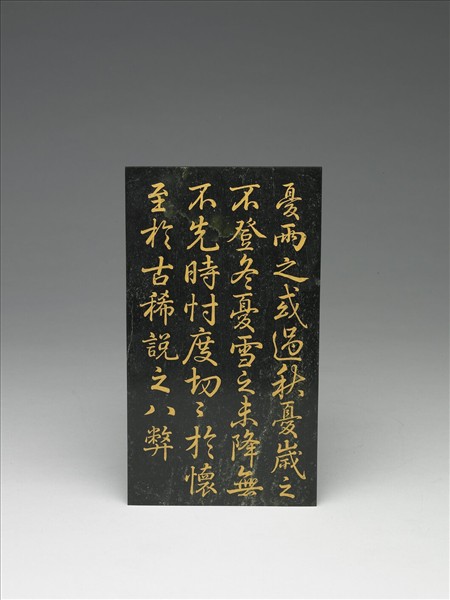 憂雨之或過秋憂歲之
不登冬憂雪之未降無
不先時忖度切〻於懷
至於古稀說之八弊